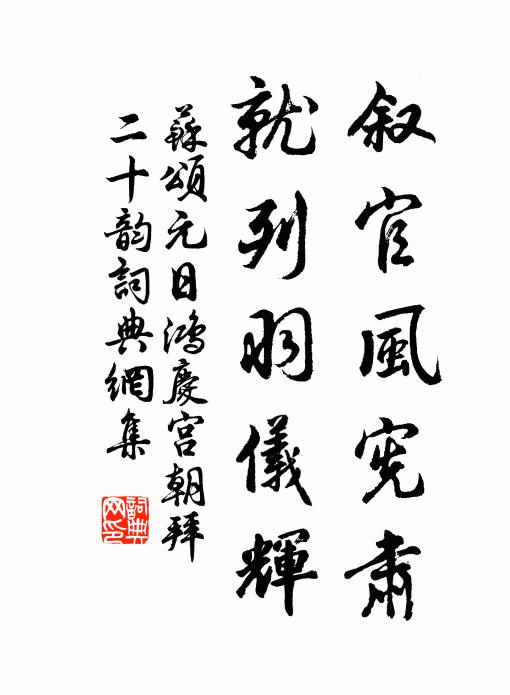 叙官風宪肅
就列羽儀輝
蘇頌元日鴻慶宫朝拜
二十韵詞典網集
詞典网印